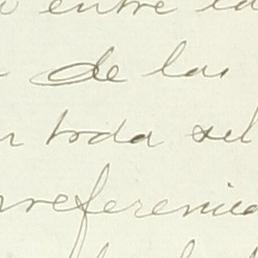 entre la
de las
toda sel
referencia